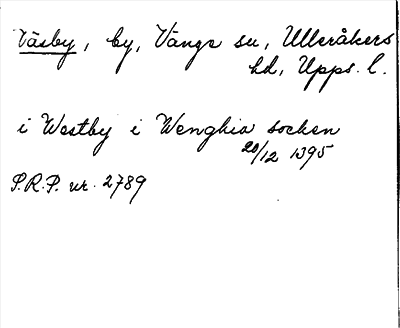 Väsby, by, Vänge sn, Ulleråkers
hd, Upps. l.
i Westby i Wenghia socken
20/12 1395
P.R.P. nr. 2789